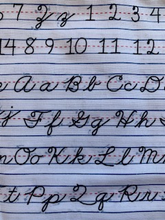 6 7 Zz 1 2 3 4
14 8 9 10 11 12
Aa Bb Cc D
Ff Gg Hh
m Oo Kk Ll M
t Pp Qq Rr